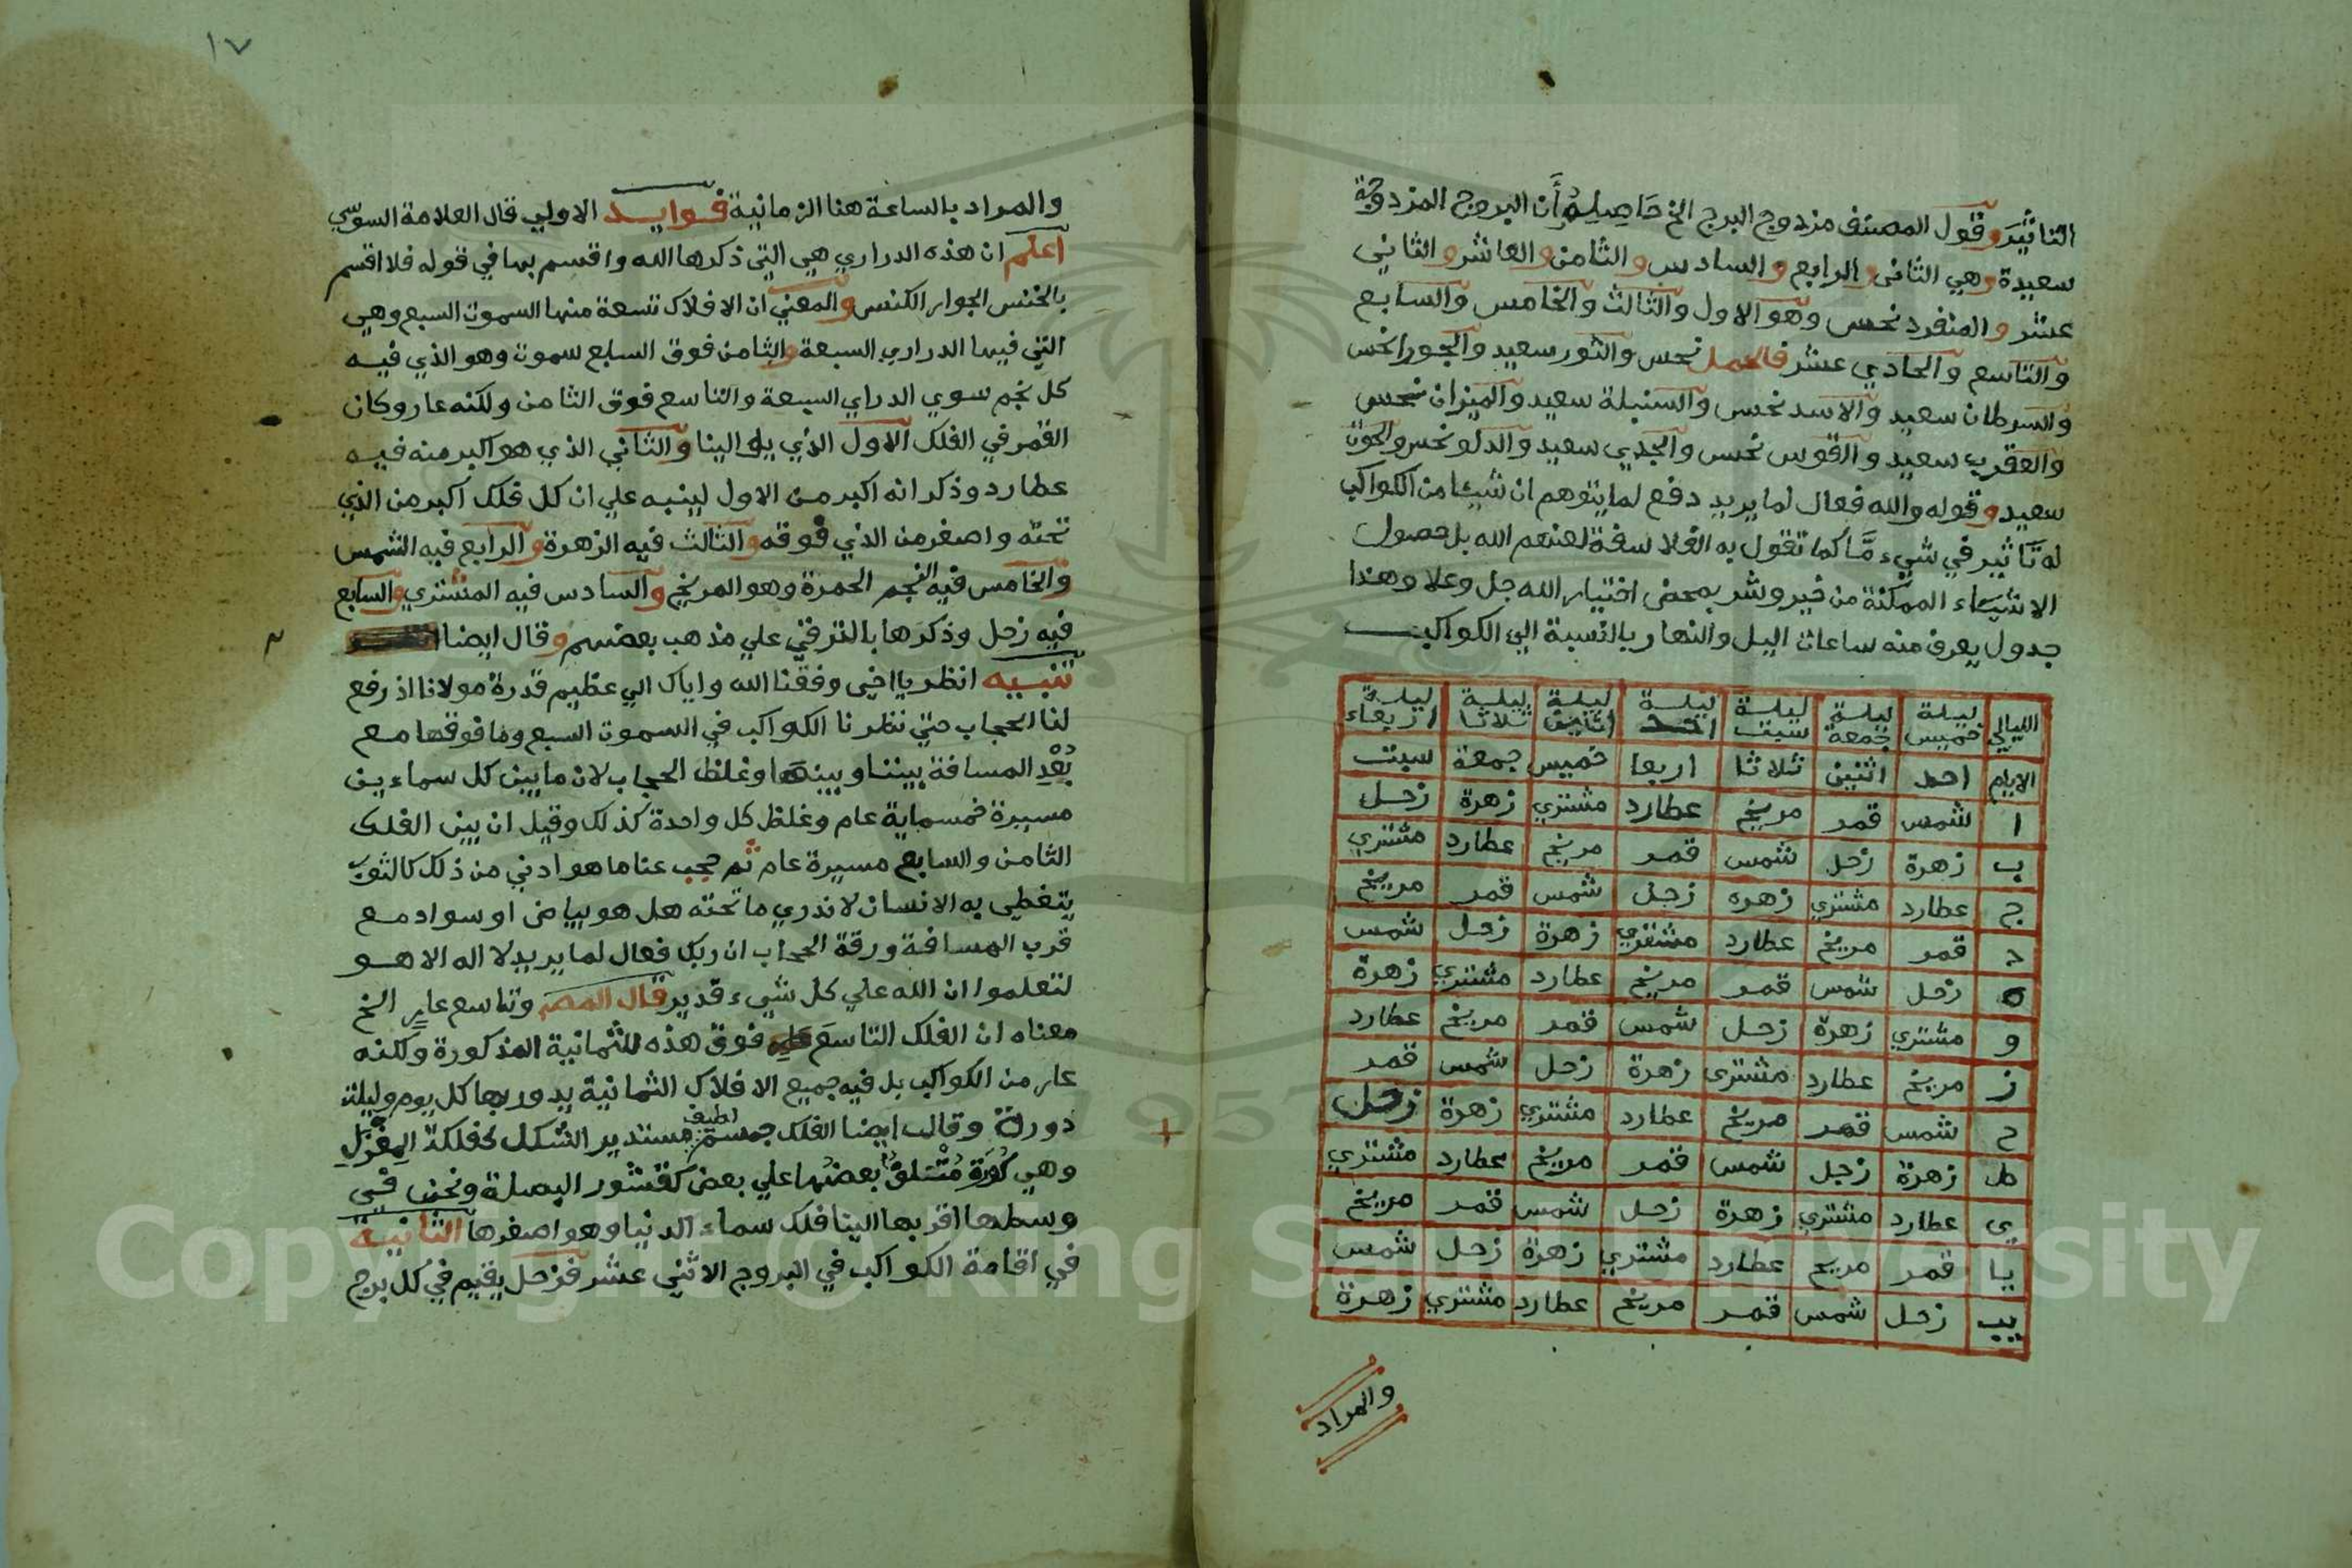 التاثير وقول المصنف مزدوج البرج الخ حَاصِله أَن البروج المزدوجة
سعيدة وهي الثانى والرابع والسادس والثامن والعاشر والثاني
عشر والمنفرد نحس وهو الاول والثالث والخامس والسابع
والتاسع والحادي عشر فالحمل نحس والثور سعيد والجوزا نحس
والسرطان سعيد والاسد نحس والسنبلة سعيد والميزان نحس
والعقرب سعيد والقوس نحس والجدي سعيد والدلو نحس والحوت
سعيد وقوله والله فعال لما يريد دفع لما يتوهم ان شيئا من الكواكب
له تاثير في شيء مَّا كما تقول به الفلاسفة لعنهم الله بل حصول
الاشياء الممكنة من خير وشر بمحض اختيار الله جل وعلا وهذا
جدول يعرف منه ساعات اليل والنهار بالنسبة الي الكواكب
الليالي ليلة خميس ليلة جمعة ليلة سبت ليلة احد ليلة اثنين ليلة ثلاثا ليلة اربعاء
الايام احد اثنين ثلاثا اربعا خميس جمعة سبت
ا شمس قمر مريخ عطارد مشتري زهرة زحل
ب زهرة زحل شمس قمر مريخ عطارد مشتري
ج عطارد مشتري زهره زحل شمس قمر مريخ
د قمر مريخ عطارد مشتري زهرة زحل شمس
ه زحل شمس قمر مريخ عطارد مشتري زهرة
و مشتري زهرة زحل شمس قمر مريخ عطارد
ز مريخ عطارد مشترى زهرة زحل شمس قمر
ح شمس قمر مريخ عطارد مشتري زهرة زحل
ط زهرة زحل شمس قمر مريخ عطارد مشتري
ي عطارد مشتري زهرة زحل شمس قمر مريخ
يا قمر مريخ عطارد مشتري زهرة زحل شمس
يب زحل شمس قمر مريخ عطارد مشتري زهرة
والمراد
١٧
والمراد بالساعة هنا الزمانية فوايد الاولي قال العلامة السوسي
اعلم ان هذه الدراري هي التي ذكرها الله واقسم بها في قوله فلا اقسم
بالخنس الجوار الكنس والمعني ان الافلاك تسعة منها السموت السبع وهي
التي فيها الدراري السبعة والثامن فوق السابع سموت وهو الذي فيه
كل نجم سوي الدراي السبعة والتاسع فوق الثامن ولكنه عار وكان
القمر في الفلك الاول الذي يلي الينا والثاني الذي هو اكبر منه فيه
عطارد وذكر انه اكبر من الاول لينبه علي ان كل فلك اكبر من الذي
تحته واصغر من الذي فوقه والثالث فيه الزهرة والرابع فيه الشمس
والخامس فيه النجم الحمرة وهو المريخ والسادس فيه المشتري والسابع
فيه زحل وذكرها بالترقي علي مذهب بعضهم وقال ايضا
تنبيه انظر يا اخي وفقنا الله واياك الي عظيم قدرة مولانا اذ رفع
لنا الحجاب حتي نظرنا الكواكب في السموت السبع وما فوقها مع
بُعْدِ المسافة بيننا وبينها وغلظ الحجاب لان مابين كل سماءين
مسيرة خمسماية عام وغلظ كل واحدة كذلك وقيل ان بين الفلك
الثامن والسابع مسيرة عام ثم حجب عنا ما هو ادني من ذلك كالثوب
يتغطي به الانسان لا ندري ما تحته هل هو بياض او سواد مع
قرب المسافة ورقة الحجاب ان ربك فعال لما يريد لا اله الا هو
لتعلموا ان الله علي كل شيء قدير قال المصـ وتاسع عار الخ
معناه ان الفلك التاسع فوق هذه الثمانية المذكورة ولكنه
عار من الكواكب بل فيه جميع الافلاك الثمانية يدور بها كل يوم وليلة
دورة وقال ايضا الفلك جسم لطيف مستدير الشكل كفلكة المِغْزَلِ
وهي كُورَة بعضها علي بعض كقشور البصلة ونحن في
وسطها اقربها الينا فلك سماء الدنيا وهو اصغرها الثانية
في اقامة الكواكب في البروج الاثني عشر فزحل يقيم في كل برج
Copyright © King Saud University
1957